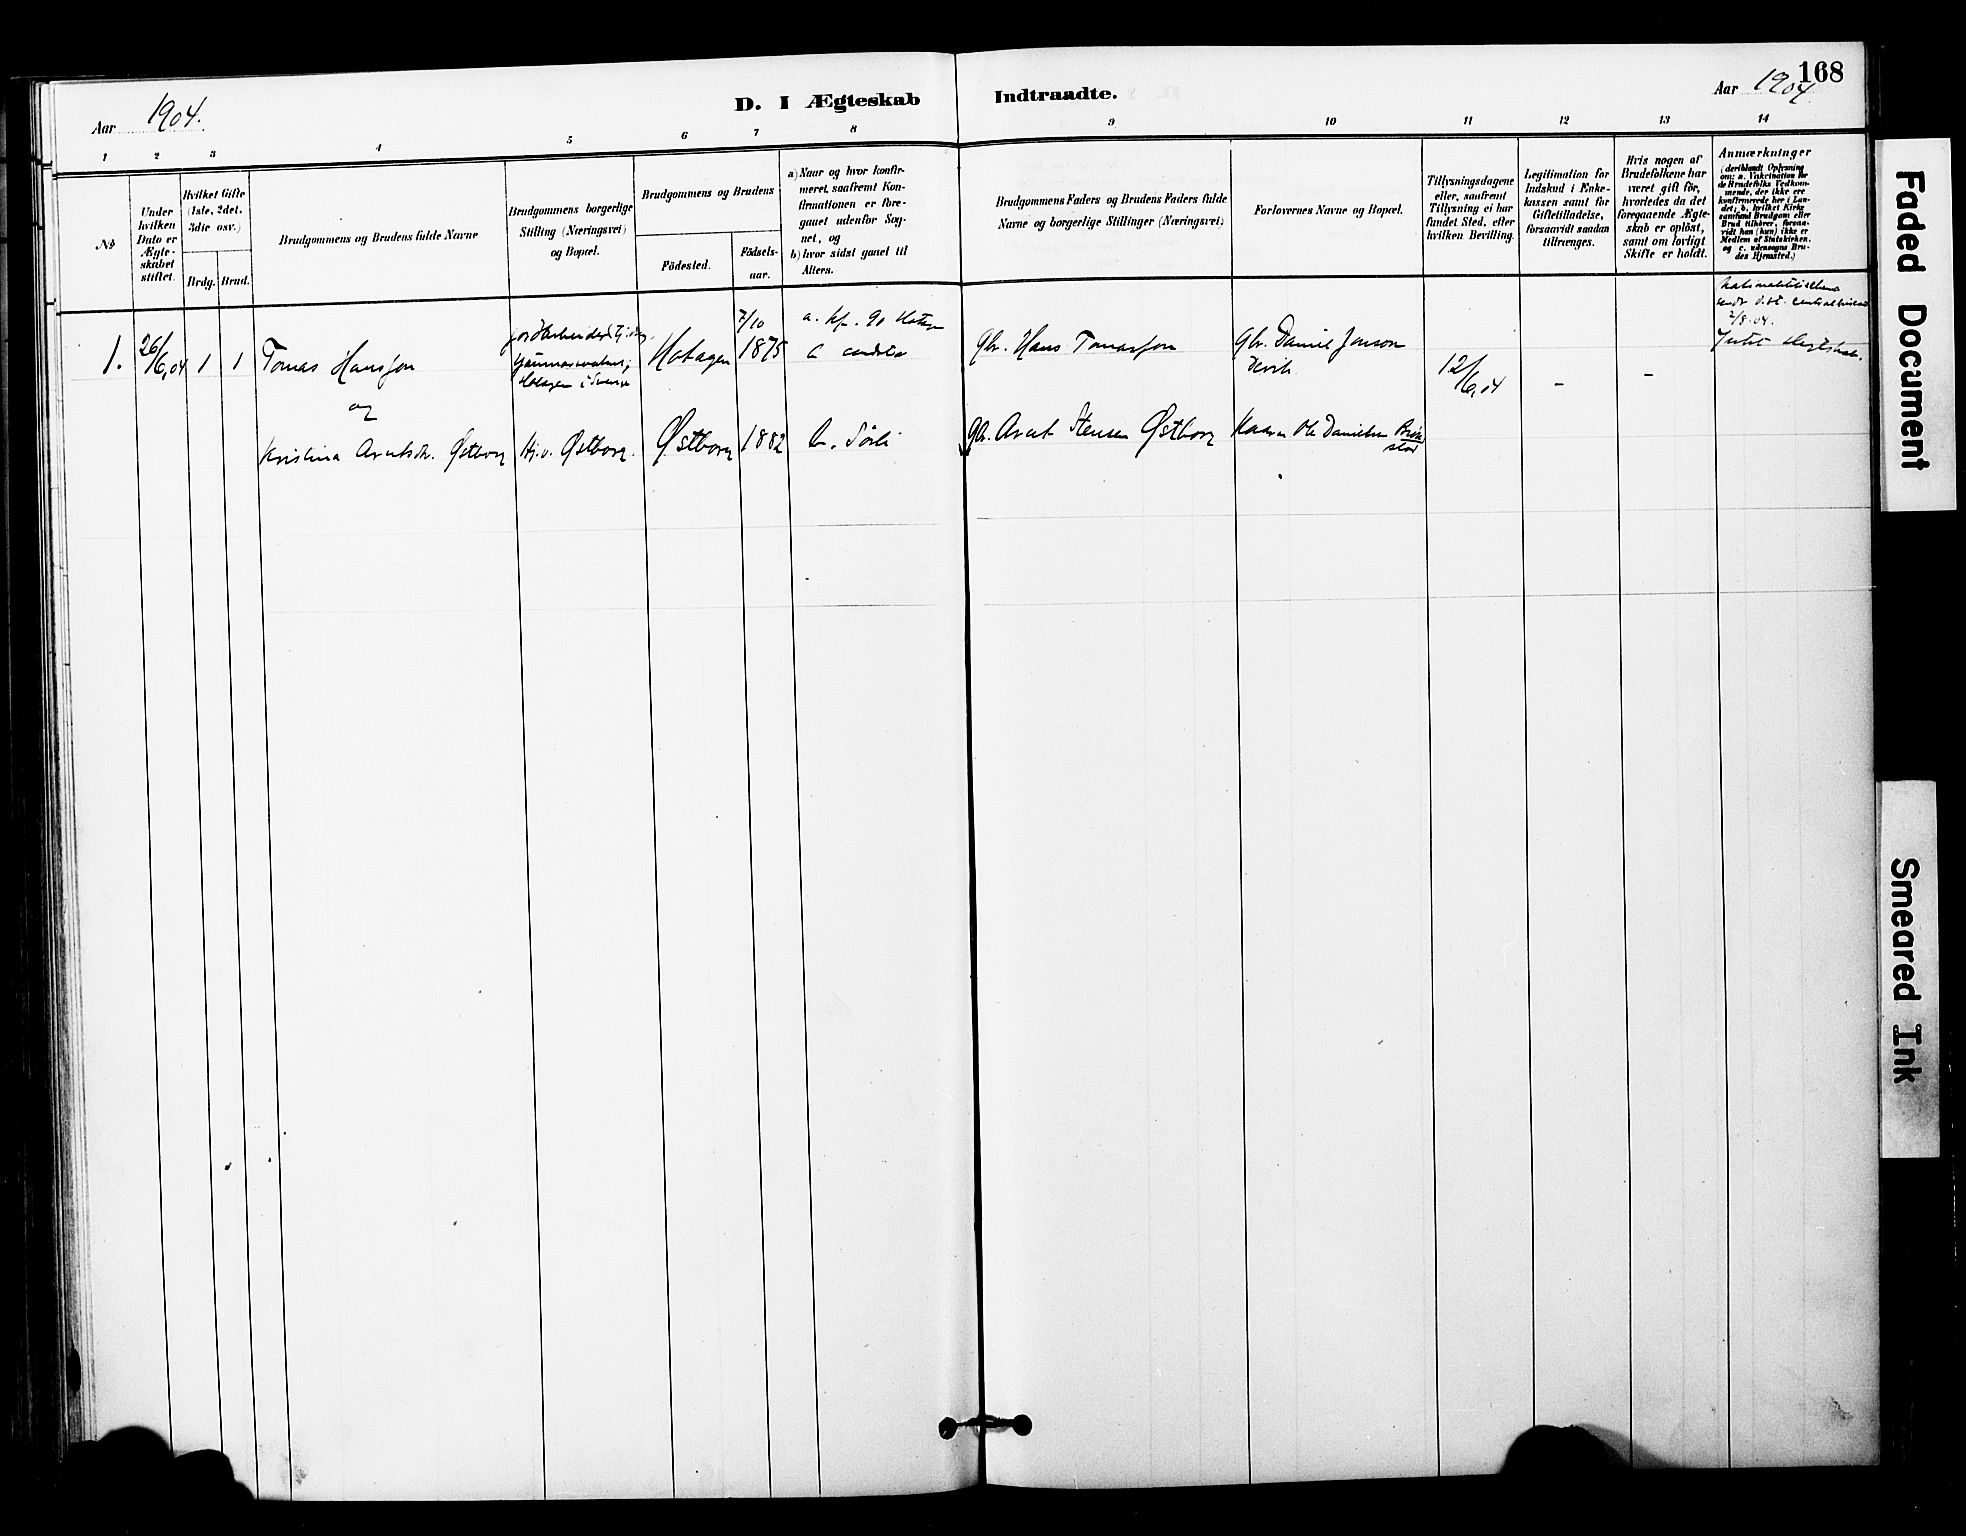 168
Aar 1904.
D. I Ægteskab Indtraadte.
Aar 1904.
1 2 3 4 5 6 7 8 9 10 11 12 13 14
No
Under
hvilken
Dato er
Ægte-
skabet
stiftet.
Hvilket Gifte
(1ste, 2det,
3die osv.)
Brdg. Brud.
Brudgommens og Brudens fulde Navne
Brudgommens borgerlige
Stilling (Næringsvei)
og Bopæl.
Brudgommens og Brudens
Födested.
Födsels-
aar.
a) Naar og hvor konfir-
meret, saafremt Kon-
firmationen er fore-
gaaet udenfor Sog-
net, og
b) hvor sidst gaaet til
Alters.
Brudgommens Faders og Brudens Faders fulde
Navne og borgerlige Stillinger (Næringsvei)
Forlovernes Navne og Bopæl.
Tillysningsdagene
eller, saafremt
Tillysning ei har
fundet Sted, efter
hvilken Bevilling.
Legitimation for
Indskud i Enke-
kassen samt for
Giftetilladelse,
forsaavidt saadan
tiltrenges.
Hvis nogen af
Brudefolkene har
været gift för,
hvorledes da det
foregaaende Ægte-
skab er oplöst,
samt om lovligt
Skifte er holdt.
Anmærkninger
(deriblandt Oplysning
om: a. Vakcination for
de Brudefolks Vedkom-
mende, der ikke ere
konfirmerede her i Lan-
det; b. hvilket Kirke-
samfund Brudgom eller
Brud tilhører, forsaa-
vidt han (hun) ikke er
Medlem af Statskirken,
og c. udensogns Bru-
des Hjemsted.)
1. 26/6,04 1 1 Tomas Hansson
Hotagen i
Hotagen
7/10
1875
a. kf. 90 Hotagen
Gbr. Hans Tomasson
Gbr. Daniel Jonson
Devik
12/6,04
–
–
2/8.04.
og
Kristina Arntsdr. Østborg
Hj.v. Østborg.
Østborg
1882
b. Sörli
Gbr. Arnt Stensen Østborg
Ole Danielsen
Faded Document
Smeared Ink